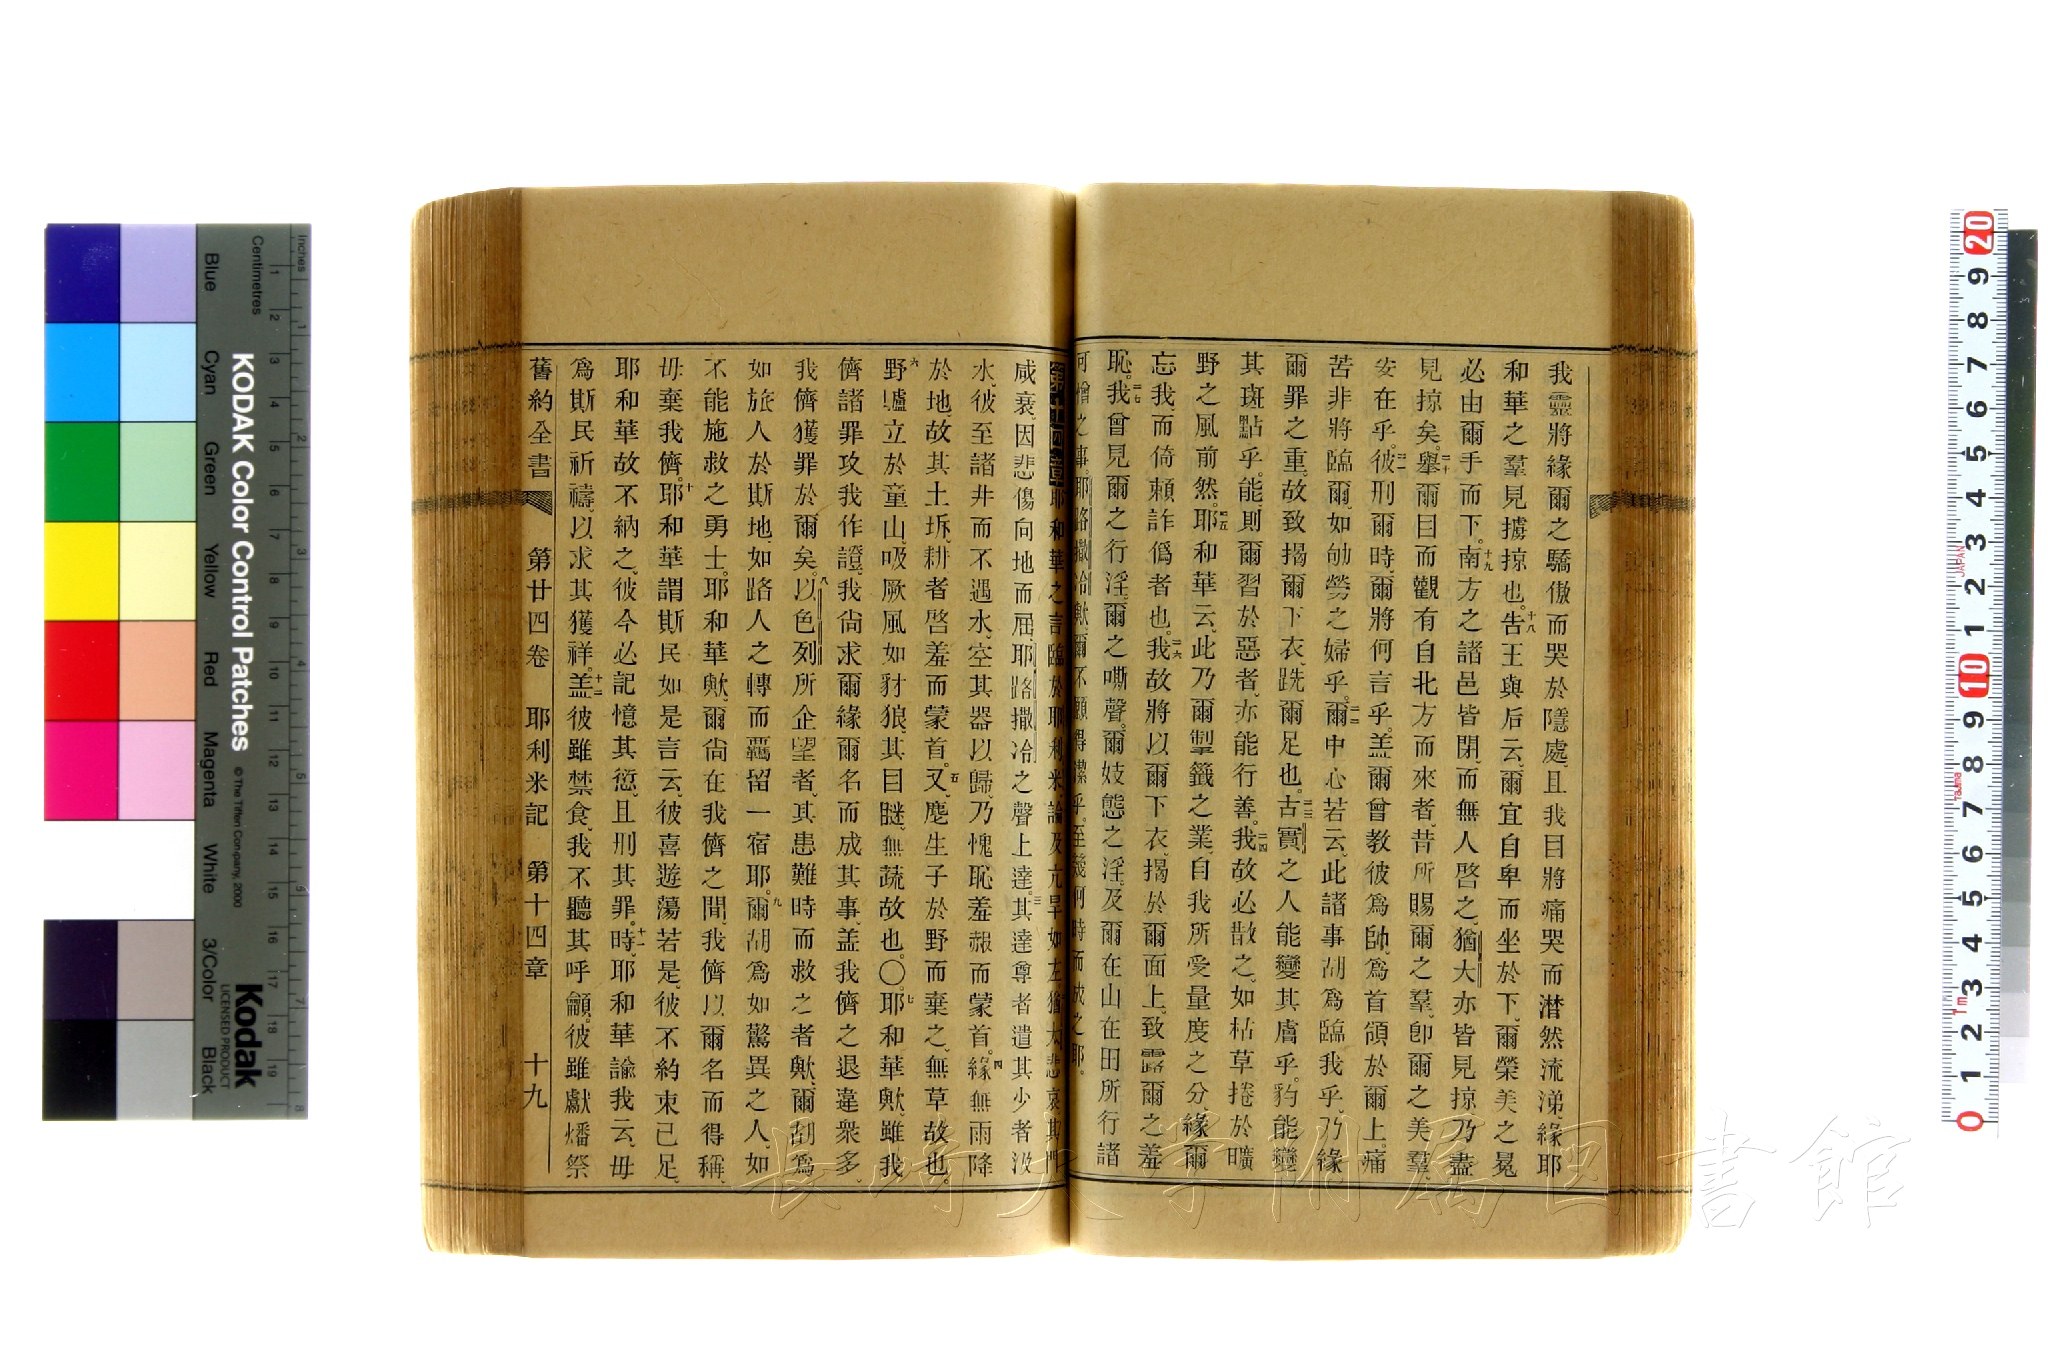 我靈將緣爾之驕傲而哭於隱處、且我目將痛哭而潸然流涕、緣耶
和華之羣見擄掠也。十八告王與后云、爾宜自卑而坐於下、爾榮美之冕
必由爾手而下。十九南方之諸邑皆閉、而無人啓之、猶大亦皆見掠、乃盡
見掠矣。二十舉爾目而觀有自北方而來者、昔所賜爾之羣、卽爾之美羣、
安在乎。二一彼刑爾時、爾將何言乎。盖爾曾教彼爲帥、爲首領於爾上。痛
苦非將臨爾、如劬勞之婦乎。二二爾中心若云、此諸事胡爲臨我乎、乃緣
爾罪之重、故致揭爾下衣、跣爾足也。二三古實之人能變其膚乎。豹能變
其斑點乎。能、則爾習於惡者、亦能行善。二四我故必散之、如枯草捲於曠
野之風前然。二五耶和華云、此乃爾掣籤之業、自我所受量度之分、緣爾
忘我、而倚賴詐僞者也。二六我故將以爾下衣、揭於爾面上、致露爾之羞
恥。二七我曾見爾之行淫。爾之嘶聲。爾妓態之淫。及爾在山在田所行諸
可憎之事。耶路撒冷歟、爾不願得潔乎。至幾何時而成之耶。
第十四章 耶和華之言臨於耶利米、論及亢旱如左、猶大悲哀、其門
咸衰、因悲傷向地而屈、耶路撒冷之聲上達。三其達尊者遣其少者汲
水、彼至諸井而不遇水、空其器以歸、乃愧恥羞赧而蒙首。四緣無雨降
於地、故其土坼、耕者啓羞而蒙首。五又麀生子於野而棄之、無草故也。
六野驢立於童山、吸厥風如豺狼、其目瞇、無蔬故也。〇七耶和華歟、雖我
儕諸罪攻我作證、我尙求爾緣爾名而成其事、盖我儕之退違衆多、
我儕獲罪於爾矣。八以色列所企望者、其患難時而救之者歟、爾胡爲
如旅人於斯地、如路人之轉而羈留一宿耶。九爾胡爲如驚異之人、如
不能施救之勇士。耶和華歟、爾尙在我儕之間、我儕以爾名而得稱、
毋棄我儕。十耶和華謂斯民如是言云、彼喜遊蕩若是、彼不約束己足、
耶和華故不納之、彼今必記憶其愆、且刑其罪。十一時、耶和華諭我云、毋
爲斯民祈禱、以求其獲祥。十二盖彼雖禁食、我不聽其呼籲。彼雖獻燔祭
舊約全書 第廿四卷 耶利米記 第十四章 十九
長崎大学附属図書館
Inches
Centimetres
KODAK Color Control Patches
© The Tiffen Company, 2000
Kodak
LICENSED PRODUCT
Blue Cyan Green Yellow Red Magenta White 3/Color Black